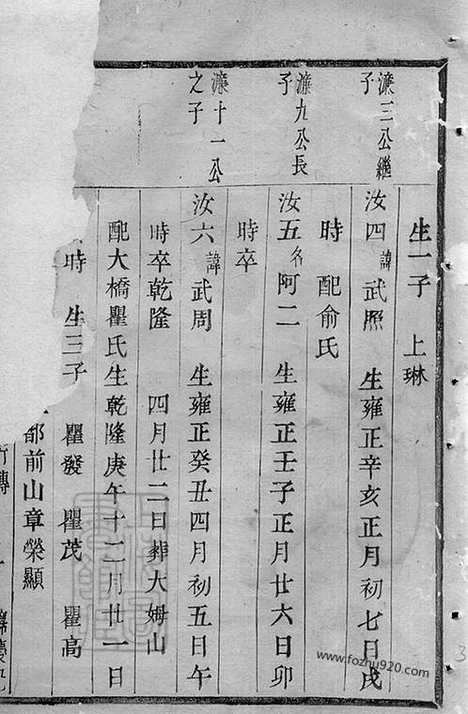 生一子　上琳
濂三公繼
子
汝四諱武照　生雍正辛亥正月初七日戌
時　配俞氏
濂九公長
子
汝五名阿二　生雍正壬子正月廿六日卯
時卒
濂十一公
之子
汝六諱武周　生雍正癸丑四月初五日午
時卒乾隆　四月廿二日葬大姆山
配大橋瞿氏生乾隆庚午十二月廿一日
時　生三子　瞿發　瞿茂　瞿高
都前山章榮顯
www.fozhu920.com